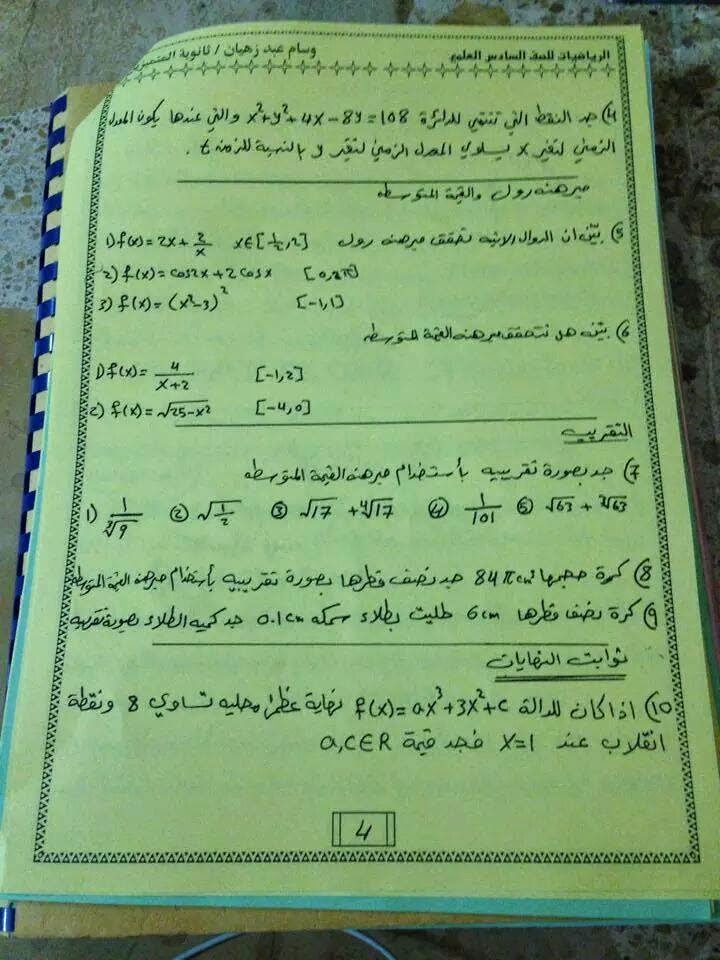 الرياضيات للصف السادس العلمي
وسام عبد زهيان / ثانوية
4) جد النقط التي تنتمي للدائرة x²+y²+4x-8y=108 والتي عندها يكون المعدل
الزمني لتغير x يساوي المعدل الزمني لتغير y بالنسبة للزمن t .
مبرهنه رول والقيمة المتوسطه
5) بيّن ان الدوال الاتيه تحقق مبرهنه رول 1) f(x)=2x+2/x x∈[1/2,2]
2) f(x)=cos2x+2cosx [0,2π]
3) f(x)=(x²-3)² [-1,1]
6) بيّن هل تتحقق مبرهنه القيمة المتوسطه
1) f(x)=4/(x+2) [-1,2]
2) f(x)=√25-x² [-4,0]
التقريب
7) جد بصورة تقريبيه بأستخدام مبرهنه القيمة المتوسطه
1) 1/∛9 ② √1/2 ③ √17 + ∜17 ④ 1/101 ⑤ √63 + ∛63
8) كرة حجمها 84πcm³ جد نصف قطرها بصورة تقريبيه بأستخدام مبرهنه القيمة المتوسطه
9) كرة نصف قطرها 6cm طليت بطلاء سمكه 0.1cm جد كميه الطلاء بصورة تقريبيه
ثوابت النهايات
10) اذا كان للدالة f(x)=ax³+3x²+c نهاية عظمى محليه تساوي 8 ونقطة
انقلاب عند x=1 فجد قيمة a,c∈R
4